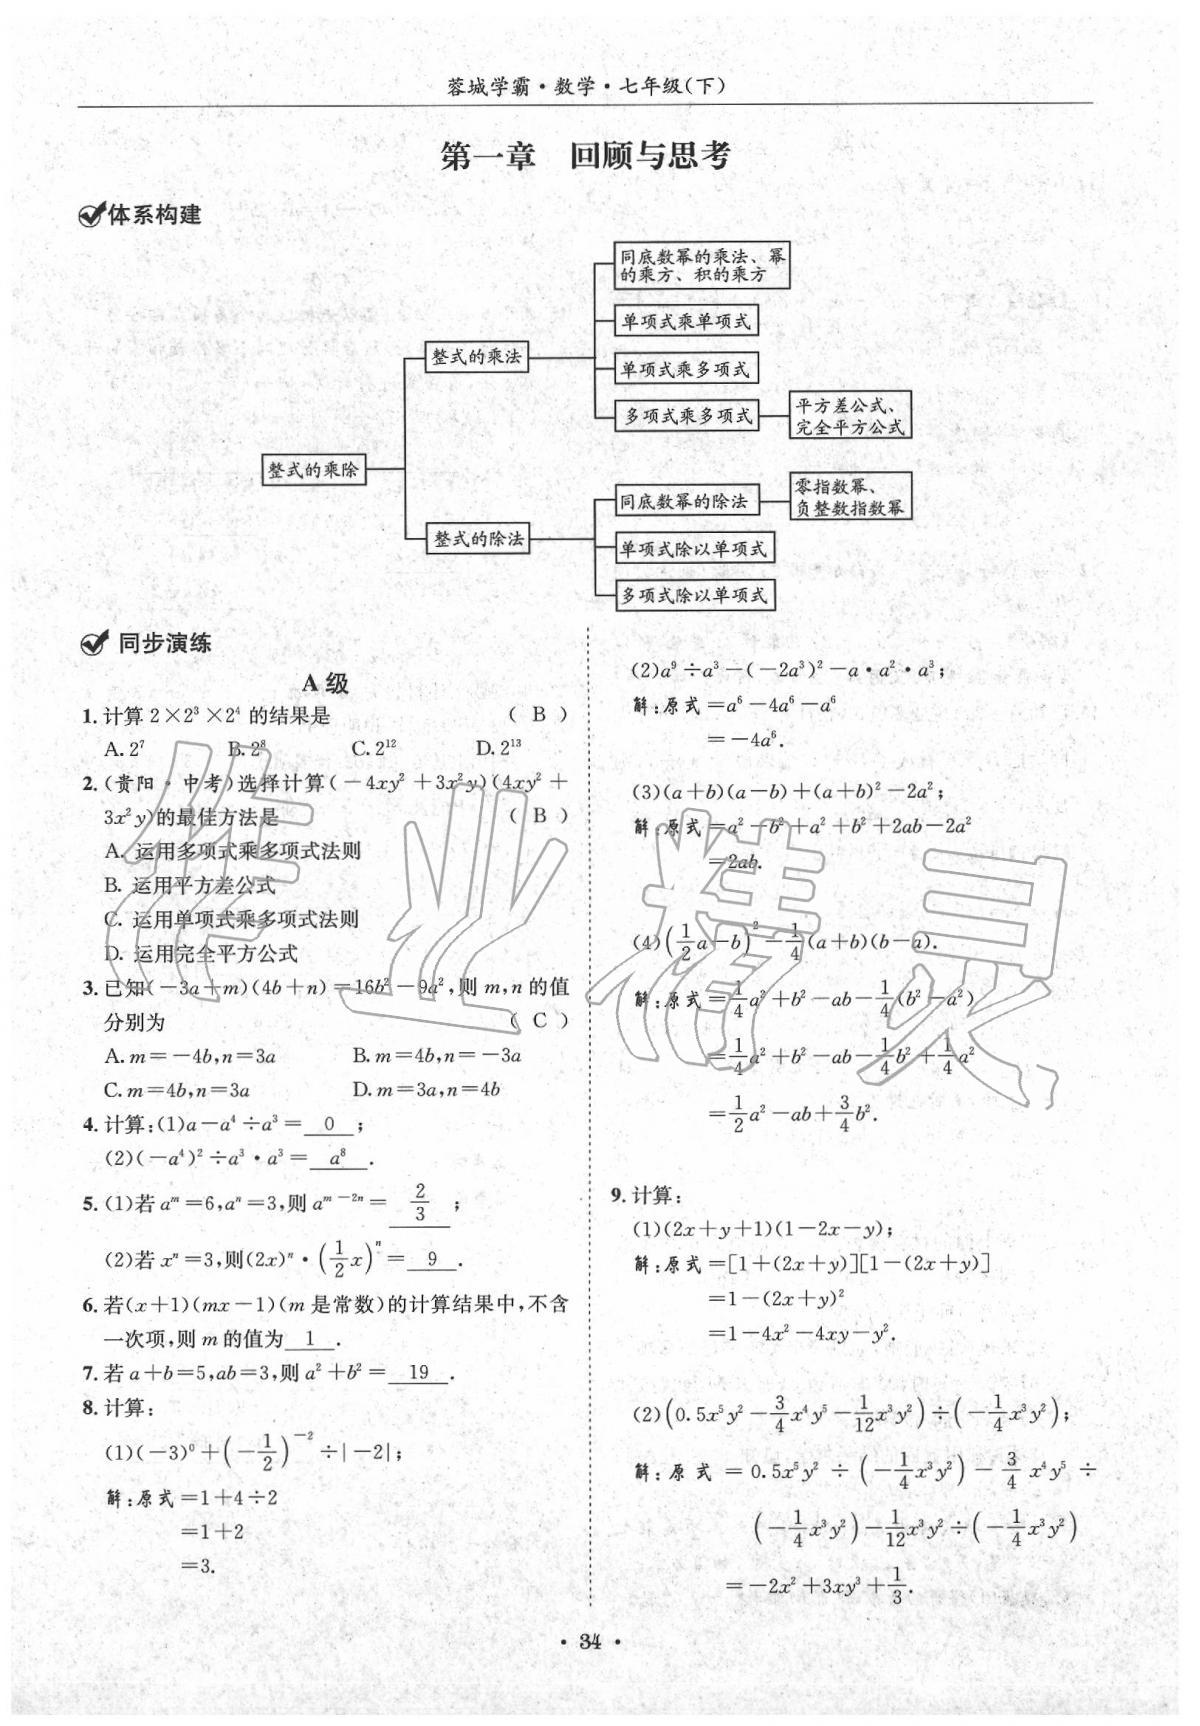 蓉城学霸·数学·七年级(下)
第一章　回顾与思考
体系构建
同底数幂的乘法、幂
的乘方、积的乘方
单项式乘单项式
整式的乘法
单项式乘多项式
多项式乘多项式
平方差公式、
完全平方公式
整式的乘除
同底数幂的除法
零指数幂、
负整数指数幂
整式的除法
单项式除以单项式
多项式除以单项式
同步演练
A 级
1. 计算 2×2³×2⁴ 的结果是 ( B )
A. 2⁷ B. 2⁸ C. 2¹² D. 2¹³
2. (贵阳·中考)选择计算(-4xy²+3x²y)(4xy²+
3x²y)的最佳方法是 ( B )
A. 运用多项式乘多项式法则
B. 运用平方差公式
C. 运用单项式乘多项式法则
D. 运用完全平方公式
3. 已知(-3a+m)(4b+n)=16b²-9a²,则 m,n 的值
分别为 ( C )
A. m=-4b,n=3a B. m=4b,n=-3a
C. m=4b,n=3a D. m=3a,n=4b
4. 计算:(1)a-a⁴÷a³= 0 ;
(2)(-a⁴)²÷a³·a³= a⁸ .
5. (1)若 aᵐ=6,aⁿ=3,则 aᵐ⁻²ⁿ= 2/3 ;
(2)若 xⁿ=3,则(2x)ⁿ·(1/2 x)ⁿ= 9 .
6. 若(x+1)(mx-1)(m 是常数)的计算结果中,不含
一次项,则 m 的值为 1 .
7. 若 a+b=5,ab=3,则 a²+b²= 19 .
8. 计算:
(1)(-3)⁰+(-1/2)⁻²÷|-2|;
解:原式=1+4÷2
=1+2
=3.
(2)a⁹÷a³-(-2a³)²-a·a²·a³;
解:原式=a⁶-4a⁶-a⁶
=-4a⁶.
(3)(a+b)(a-b)+(a+b)²-2a²;
解:原式=a²-b²+a²+b²+2ab-2a²
=2ab.
(4)(1/2 a-b)²-1/4(a+b)(b-a).
解:原式=1/4 a²+b²-ab-1/4(b²-a²)
=1/4 a²+b²-ab-1/4 b²+1/4 a²
=1/2 a²-ab+3/4 b².
9. 计算:
(1)(2x+y+1)(1-2x-y);
解:原式=[1+(2x+y)][1-(2x+y)]
=1-(2x+y)²
=1-4x²-4xy-y².
(2)(0.5x⁵y²-3/4 x⁴y⁵-1/12 x³y²)÷(-1/4 x³y²);
解:原式=0.5x⁵y²÷(-1/4 x³y²)-3/4 x⁴y⁵÷
(-1/4 x³y²)-1/12 x³y²÷(-1/4 x³y²)
=-2x²+3xy³+1/3.
· 34 ·
作业精灵